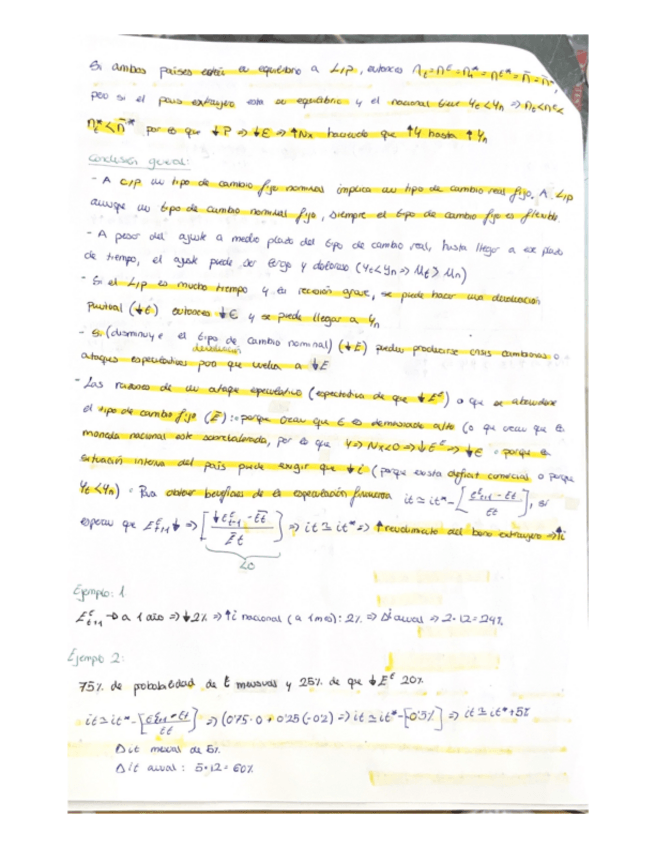 Si ambos países están en equilibrio a L/P, entonces
pero si el país extranjero esta en equilibrio y el nacional tiene Yt<Yn =>
por lo que ↓P => ↓E => ↑Nx haciendo que ↑Y hasta ↑Yn
Conclusión general:
- A C/P un tipo de cambio fijo nominal implica un tipo de cambio real fijo. A L/P
aunque un tipo de cambio nominal fijo, siempre el tipo de cambio fijo es flexible
- A pesar del ajuste a medio plazo del tipo de cambio real, hasta llegar a ese plazo
de tiempo, el ajuste puede ser largo y doloroso (Yt<Yn => Ut > Un)
- Si el L/P es mucho tiempo y en recesión grave, se puede hacer una devaluación
puntual (↓E) entonces ↓E y se puede llegar a Yn
- Si (disminuye el tipo de cambio nominal) (↓E) pueden producirse crisis cambiarias o
devaluación
ataques especulativos para que vuelva a ↓E
- Las razones de un ataque especulativo (expectativa de que ↓E^e) o que se abandone
el tipo de cambio fijo (E̅): - porque crean que E es demasiado alto (o que crean que la
moneda nacional está sobrevalorada, por lo que Y => Nx<0 => ↓E^e => ↓E - porque la
situación interna del país puede exigir que ↓i (porque exista déficit comercial o porque
Yt<Yn) - Para obtener beneficios de la especulación financiera it ≃ it* - [E^e t+1 - Et / Et], si
esperan que E^e t+1 ↓ => [↓E^e t+1 - E̅t / E̅t] => it ≃ it* => ↑rendimiento del bono extranjero => ↑i
<0
Ejemplo: 1
E^e t+1 → a 1 año => ↓2% => ↑i nacional (a 1 mes): 2% => Δi anual => 2·12=24%
Ejemplo 2:
75% de probabilidad de E mensual y 25% de que ↓E^e 20%
it ≃ it* - [E^e t+1 - Et / Et] => (0'75·0 + 0'25(-0'2) => it ≃ it* - [0'5%] => it ≃ it* + 5%
Δit mensual de 5%
Δit anual: 5·12=60%